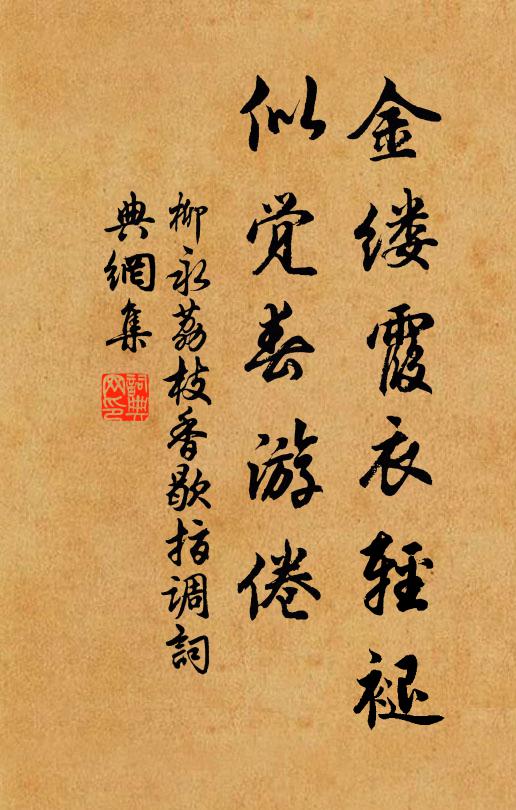 金缕霞衣輕褪
似觉春游倦
柳永荔枝香歇指调詞
典網集
詞典網印